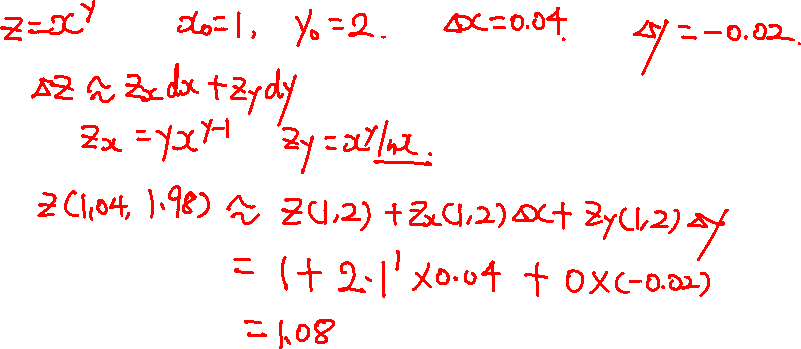 z=x^y x₀=1, y₀=2. Δx=0.04. Δy=-0.02.
Δz≈z_x dx+z_y dy
z_x=yx^{y-1} z_y=x^y ln x.
z(1.04, 1.98)≈z(1,2)+z_x(1,2)Δx+z_y(1,2)Δy
=1+2·1^1×0.04+0×(-0.02)
=1.08